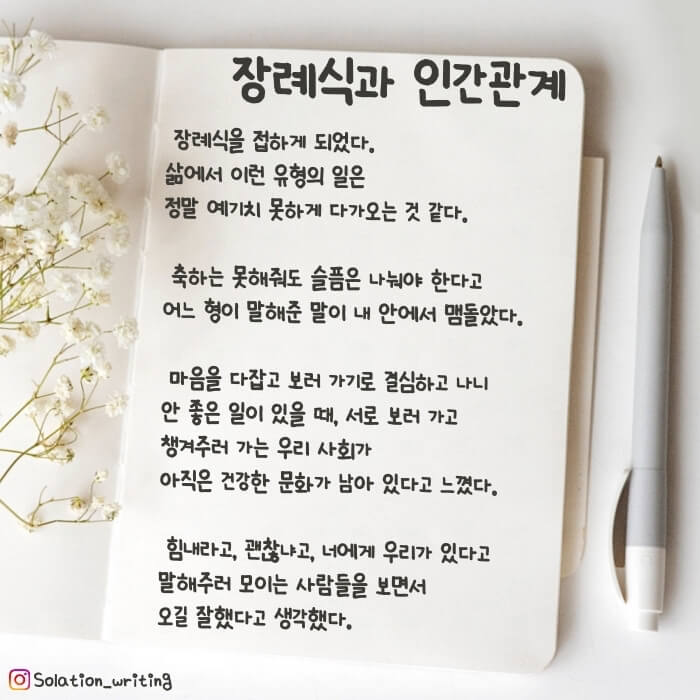 장례식과 인간관계
장례식을 접하게 되었다.
삶에서 이런 유형의 일은
정말 예기치 못하게 다가오는 것 같다.
축하는 못해줘도 슬픔은 나눠야 한다고
어느 형이 말해준 말이 내 안에서 맴돌았다.
마음을 다잡고 보러 가기로 결심하고 나니
안 좋은 일이 있을 때, 서로 보러 가고
챙겨주러 가는 우리 사회가
아직은 건강한 문화가 남아 있다고 느꼈다.
힘내라고, 괜찮냐고, 너에게 우리가 있다고
말해주러 모이는 사람들을 보면서
오길 잘했다고 생각했다.
Solation_writing